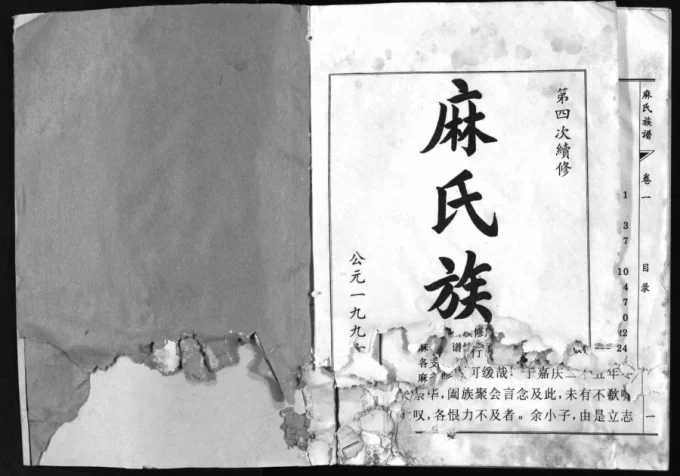 第四次續修
麻氏族
公元一九九
麻氏族譜
卷一
目录
一
1
3
7
10
4
7
0
22
24
修
譜
行
麻
各
麻
可缓哉！于嘉庆二十五年
毕，阖族聚会言念及此，未有不歔
叹，各恨力不及者。余小子，由是立志